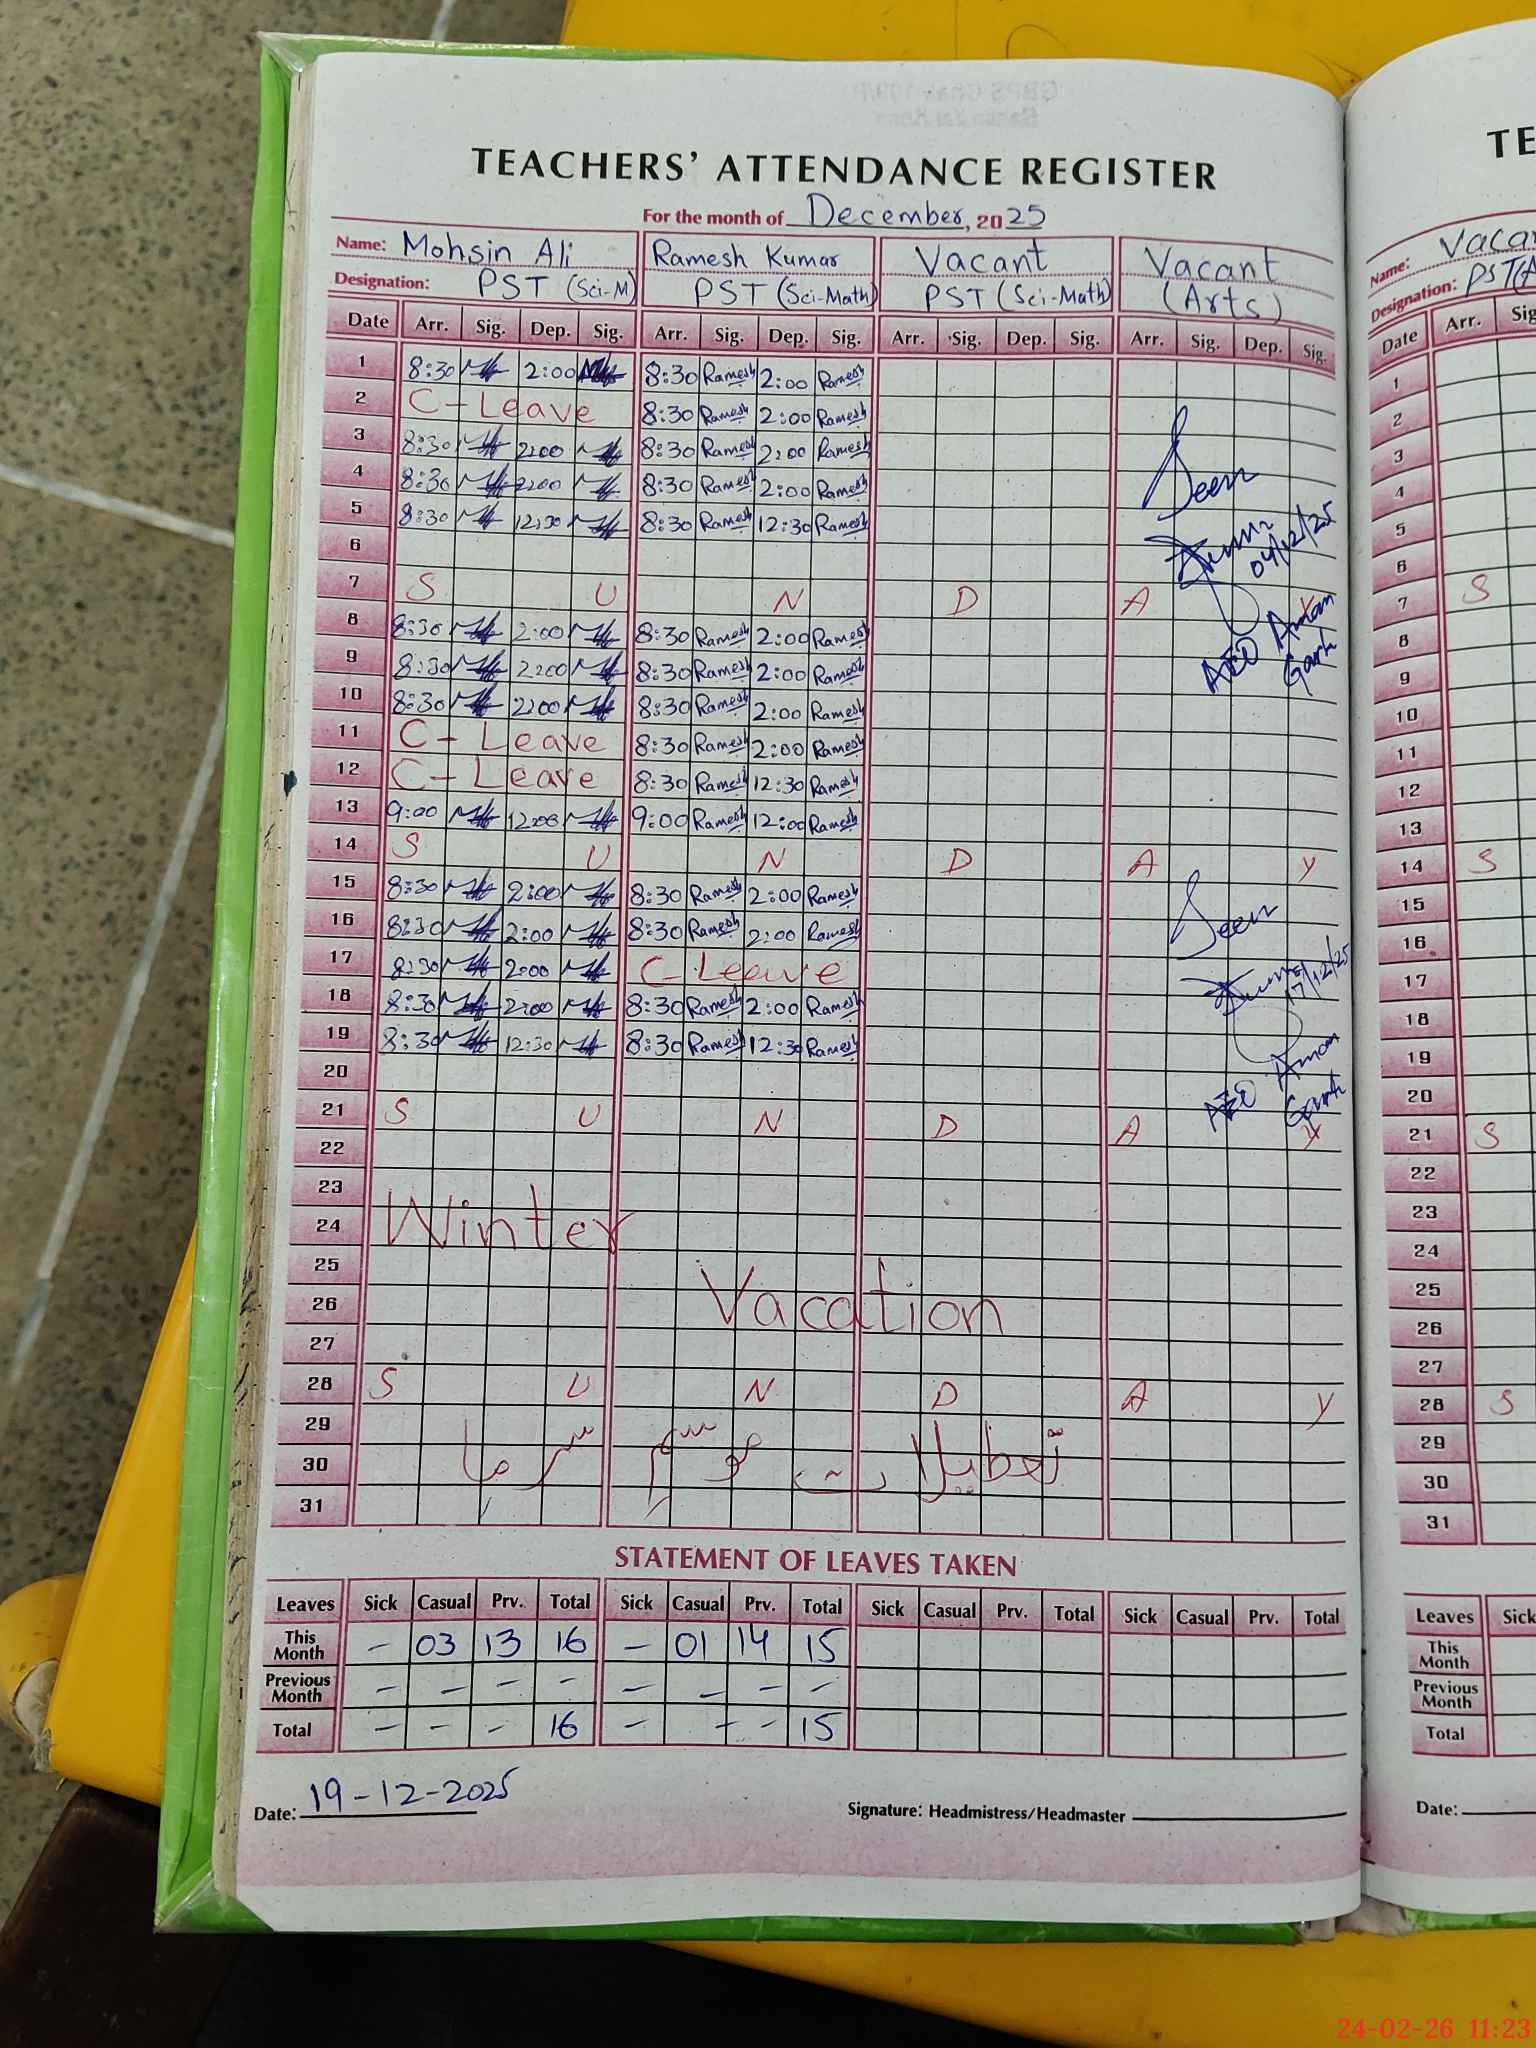 TEACHERS' ATTENDANCE REGISTER
For the month of December, 2025
Name: Mohsin Ali Ramesh Kumar Vacant Vacant
Designation: PST (Sci-M) PST (Sci-Math) PST (Sci-Math) (Arts)
Date Arr. Sig. Dep. Sig. Arr. Sig. Dep. Sig. Arr. Sig. Dep. Sig. Arr. Sig. Dep. Sig.
1 8:30 2:00 8:30 Ramesh 2:00 Ramesh
2 C-Leave 8:30 Ramesh 2:00 Ramesh
3 8:30 2:00 8:30 Ramesh 2:00 Ramesh
4 8:30 2:00 8:30 Ramesh 2:00 Ramesh
5 8:30 12:30 8:30 Ramesh 12:30 Ramesh
6
7 S U N D A
8 8:30 2:00 8:30 Ramesh 2:00 Ramesh
9 8:30 2:00 8:30 Ramesh 2:00 Ramesh
10 8:30 2:00 8:30 Ramesh 2:00 Ramesh
11 C-Leave 8:30 Ramesh 2:00 Ramesh
12 C-Leave 8:30 Ramesh 12:30 Ramesh
13 9:00 12:00 9:00 Ramesh 12:00 Ramesh
14 S U N D A Y
15 8:30 2:00 8:30 Ramesh 2:00 Ramesh
16 8:30 2:00 8:30 Ramesh 2:00 Ramesh
17 8:30 2:00 C-Leave
18 8:30 2:00 8:30 Ramesh 2:00 Ramesh
19 8:30 12:30 8:30 Ramesh 12:30 Ramesh
20
21 S U N D A Y
22
23
24 Winter
25
26 Vacation
27
28 S U N D A Y
29
30 تعطیلات موسم سرما
31
Seen
04/12/25
AEO Aman
Garh
Seen
17/12/25
AEO Aman
Garh
STATEMENT OF LEAVES TAKEN
Leaves Sick Casual Prv. Total Sick Casual Prv. Total Sick Casual Prv. Total Sick Casual Prv. Total
This Month - 03 13 16 - 01 14 15
Previous Month - - - - - - - -
Total - - - 16 - - - 15
Date: 19-12-2025
Signature: Headmistress/Headmaster
TE
Name: Vacan
Designation: PST(A
Date Arr. Sig
1
2
3
4
5
6
7 S
8
9
10
11
12
13
14 S
15
16
17
18
19
20
21 S
22
23
24
25
26
27
28 S
29
30
31
Leaves Sick
This Month
Previous Month
Total
Date:
24-02-26 11:23